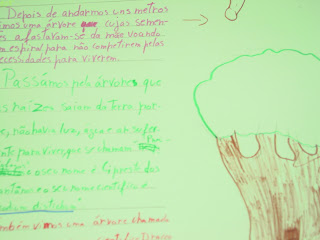 Depois de andarmos uns metros
mos uma árvore cujas semen-
s afastavam-se da mãe voando
m espiral para não competirem pelas
ecessidades para viverem.
Passámos pela árvores que
as raízes saíam da Terra por-
e, não havia luz, água e ar sufi-
nte para viver, que se chamam
e o seu nome é Cipreste dos
ântanos e o seu nome científico é
distichum
ambém vimos uma árvore chamada